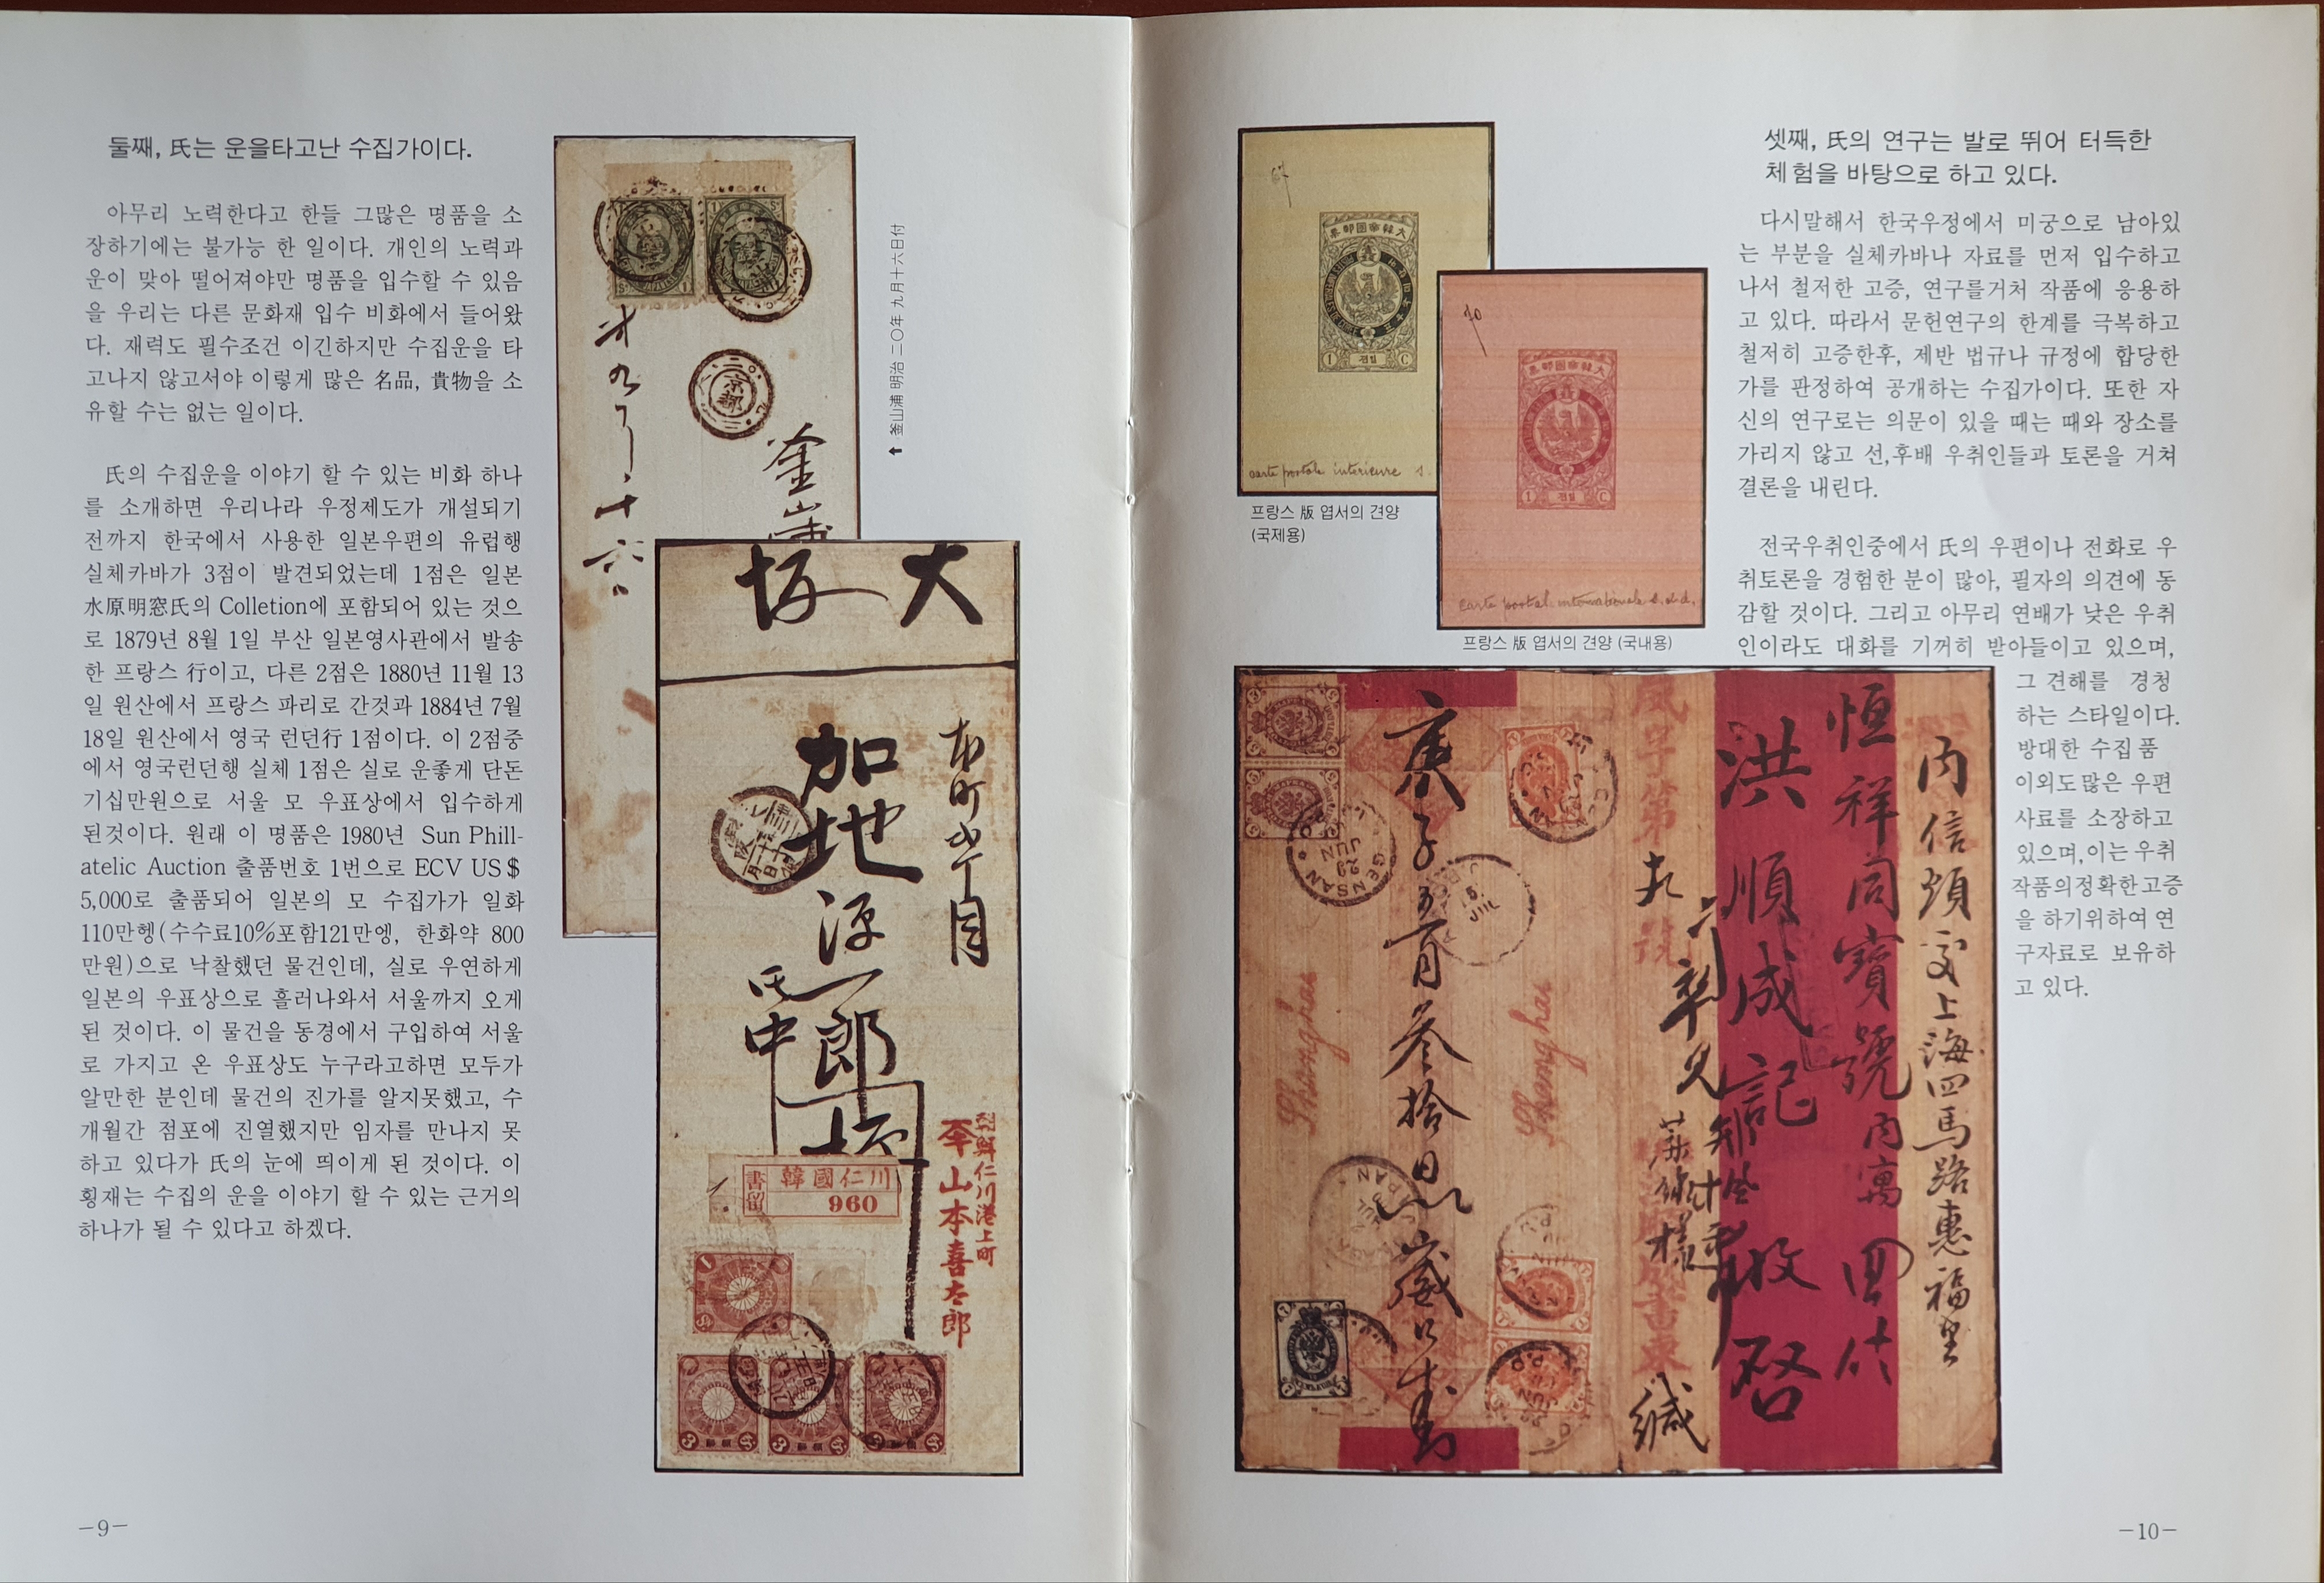 둘째, 氏는 운을타고난 수집가이다.
아무리 노력한다고 한들 그많은 명품을 소
장하기에는 불가능 한 일이다. 개인의 노력과
운이 맞아 떨어져야만 명품을 입수할 수 있음
을 우리는 다른 문화재 입수 비화에서 들어왔
다. 재력도 필수조건 이긴하지만 수집운을 타
고나지 않고서야 이렇게 많은 名品, 貴物을 소
유할 수는 없는 일이다.
氏의 수집운을 이야기 할 수 있는 비화 하나
를 소개하면 우리나라 우정제도가 개설되기
전까지 한국에서 사용한 일본우편의 유럽행
실체카바가 3점이 발견되었는데 1점은 일본
水原明窓氏의 Colletion에 포함되어 있는 것으
로 1879년 8월 1일 부산 일본영사관에서 발송
한 프랑스 行이고, 다른 2점은 1880년 11월 13
일 원산에서 프랑스 파리로 간것과 1884년 7월
18일 원산에서 영국 런던行 1점이다. 이 2점중
에서 영국런던행 실체 1점은 실로 운좋게 단돈
기십만원으로 서울 모 우표상에서 입수하게
된것이다. 원래 이 명품은 1980년 Sun Phill-
atelic Auction 출품번호 1번으로 ECV US $
5,000로 출품되어 일본의 모 수집가가 일화
110만헹(수수료10%포함121만엥, 한화약 800
만원)으로 낙찰했던 물건인데, 실로 우연하게
일본의 우표상으로 흘러나와서 서울까지 오게
된 것이다. 이 물건을 동경에서 구입하여 서울
로 가지고 온 우표상도 누구라고하면 모두가
알만한 분인데 물건의 진가를 알지못했고, 수
개월간 점포에 진열했지만 임자를 만나지 못
하고 있다가 氏의 눈에 띄이게 된 것이다. 이
횡재는 수집의 운을 이야기 할 수 있는 근거의
하나가 될 수 있다고 하겠다.
釜山浦 明治 二〇年 九月 十六日付
京都
釜山浦
大坂
加地源一郎
氏中
書留
韓國仁川
960
朝鮮仁川港上町
山本喜太郎
-9-
carte postale interieure s.
프랑스 版 엽서의 견양
(국제용)
大韓帝國郵票
1 C
70
大韓帝國郵票
1 C
carte postale internationale s. s. d.
프랑스 版 엽서의 견양 (국내용)
셋째, 氏의 연구는 발로 뛰어 터득한
체험을 바탕으로 하고 있다.
다시말해서 한국우정에서 미궁으로 남아있
는 부분을 실체카바나 자료를 먼저 입수하고
나서 철저한 고증, 연구를거처 작품에 응용하
고 있다. 따라서 문헌연구의 한계를 극복하고
철저히 고증한후, 제반 법규나 규정에 합당한
가를 판정하여 공개하는 수집가이다. 또한 자
신의 연구로는 의문이 있을 때는 때와 장소를
가리지 않고 선,후배 우취인들과 토론을 거쳐
결론을 내린다.
전국우취인중에서 氏의 우편이나 전화로 우
취토론을 경험한 분이 많아, 필자의 의견에 동
감할 것이다. 그리고 아무리 연배가 낮은 우취
인이라도 대화를 기꺼히 받아들이고 있으며,
그 견해를 경청
하는 스타일이다.
방대한 수집 품
이외도많은 우편
사료를 소장하고
있으며,이는 우취
작품의정확한고증
을 하기위하여 연
구자료로 보유하
고 있다.
內信煩交上海四馬路惠福里
恒祥同寶號內寓
洪順成記收啓
緘
庚子五月叄拾日
Shanghai
Shanghai
GENSAN
-10-